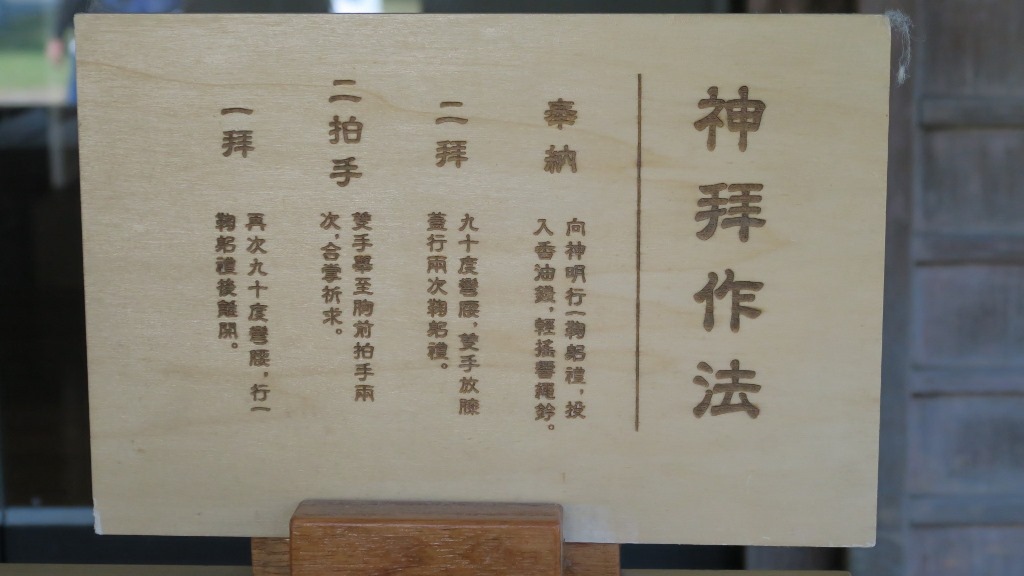 神拜作法
奉納
向神明行一鞠躬禮，投
入香油錢，輕搖響繩鈴。
二拜
九十度彎腰，雙手放膝
蓋行兩次鞠躬禮。
二拍手
雙手舉至胸前拍手兩
次，合掌祈求。
一拜
再次九十度彎腰，行一
鞠躬禮後離開。